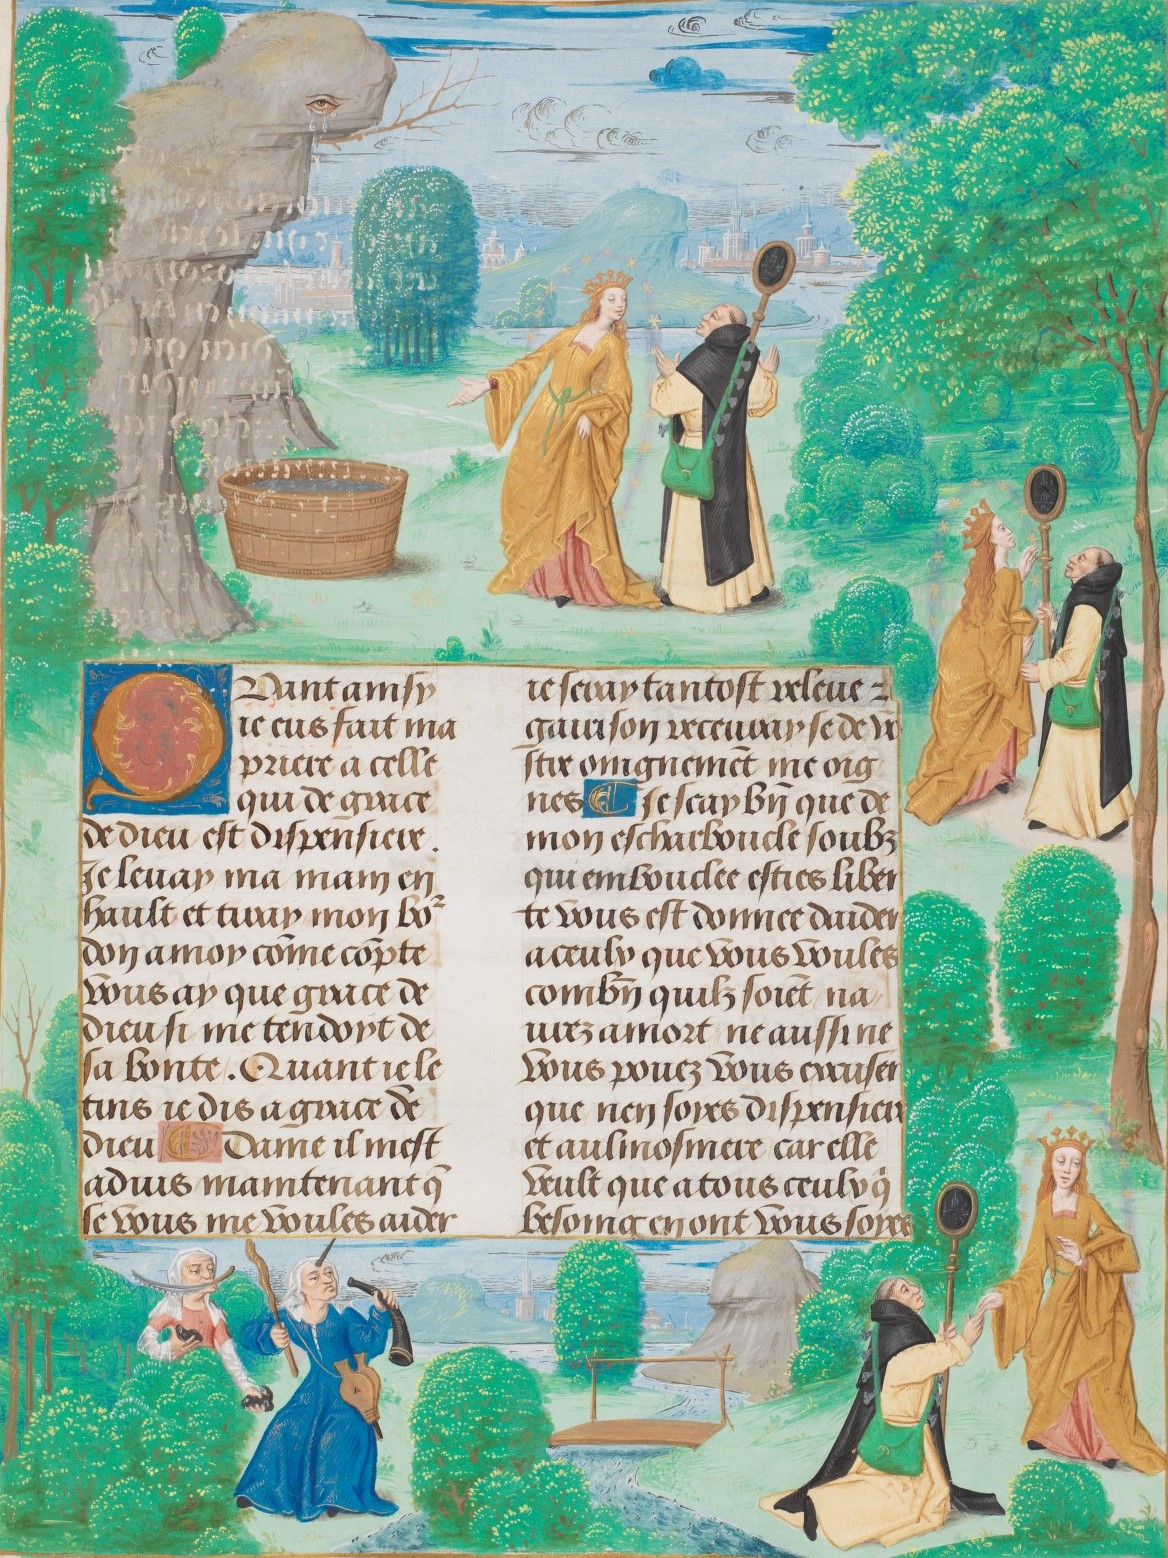 Quant ainsy
ie eus fait ma
priere a celle
qui de grace
de dieu est dispensiere.
Je leuay ma main en
hault et tiray mon bo²
don a moy cõme cõpte
vous ay que grace de
dieu si me tendoyt de
sa bonte. Quant ie le
tins ie dis a grace de
dieu Dame il mest
aduis maintenant q̃
se vous me voules aider
ie seray tantost releue z
garison receuray se de vo
stre oingnemẽt me oig
nes Et Je scay bñ que de
mon escharboucle soubz
qui emboucle esties liber
te vous est donnee daider
a ceulx que vous voules
combñ quilz soiẽt na
urez a mort ne aussi ne
vous pouez vous excuser
que nen soyes dispensiere
et aulmosniere car elle
veult que a tous ceulx q̃
besoing en ont vous soyes